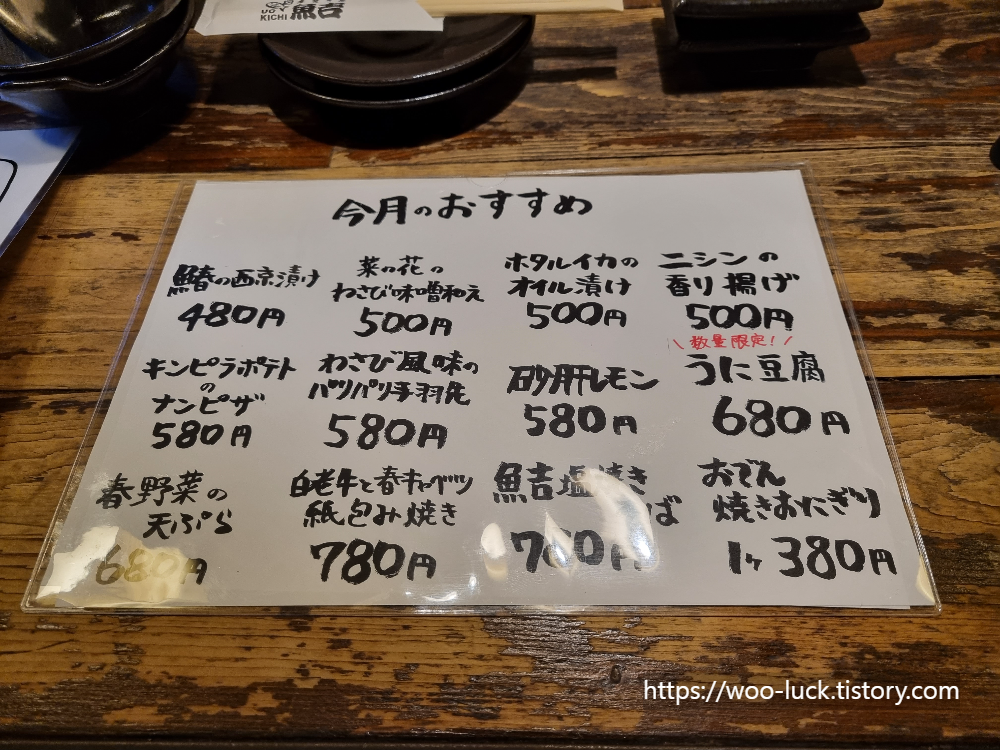 UO
KICHI
魚吉
今月のおすすめ
鰆の西京漬け
480円
菜の花の
わさび味噌和え
500円
ホタルイカの
オイル漬け
500円
ニシンの
香り揚げ
500円
キンピラポテト
の
ナンピザ
580円
わさび風味の
パリパリ手羽先
580円
砂肝レモン
580円
数量限定!
うに豆腐
680円
春野菜の
天ぷら
680円
白老牛と春キャベツ
紙包み焼き
780円
魚吉塩焼き
そば
780円
おでん
焼きおにぎり
1ヶ 380円
https://woo-luck.tistory.com